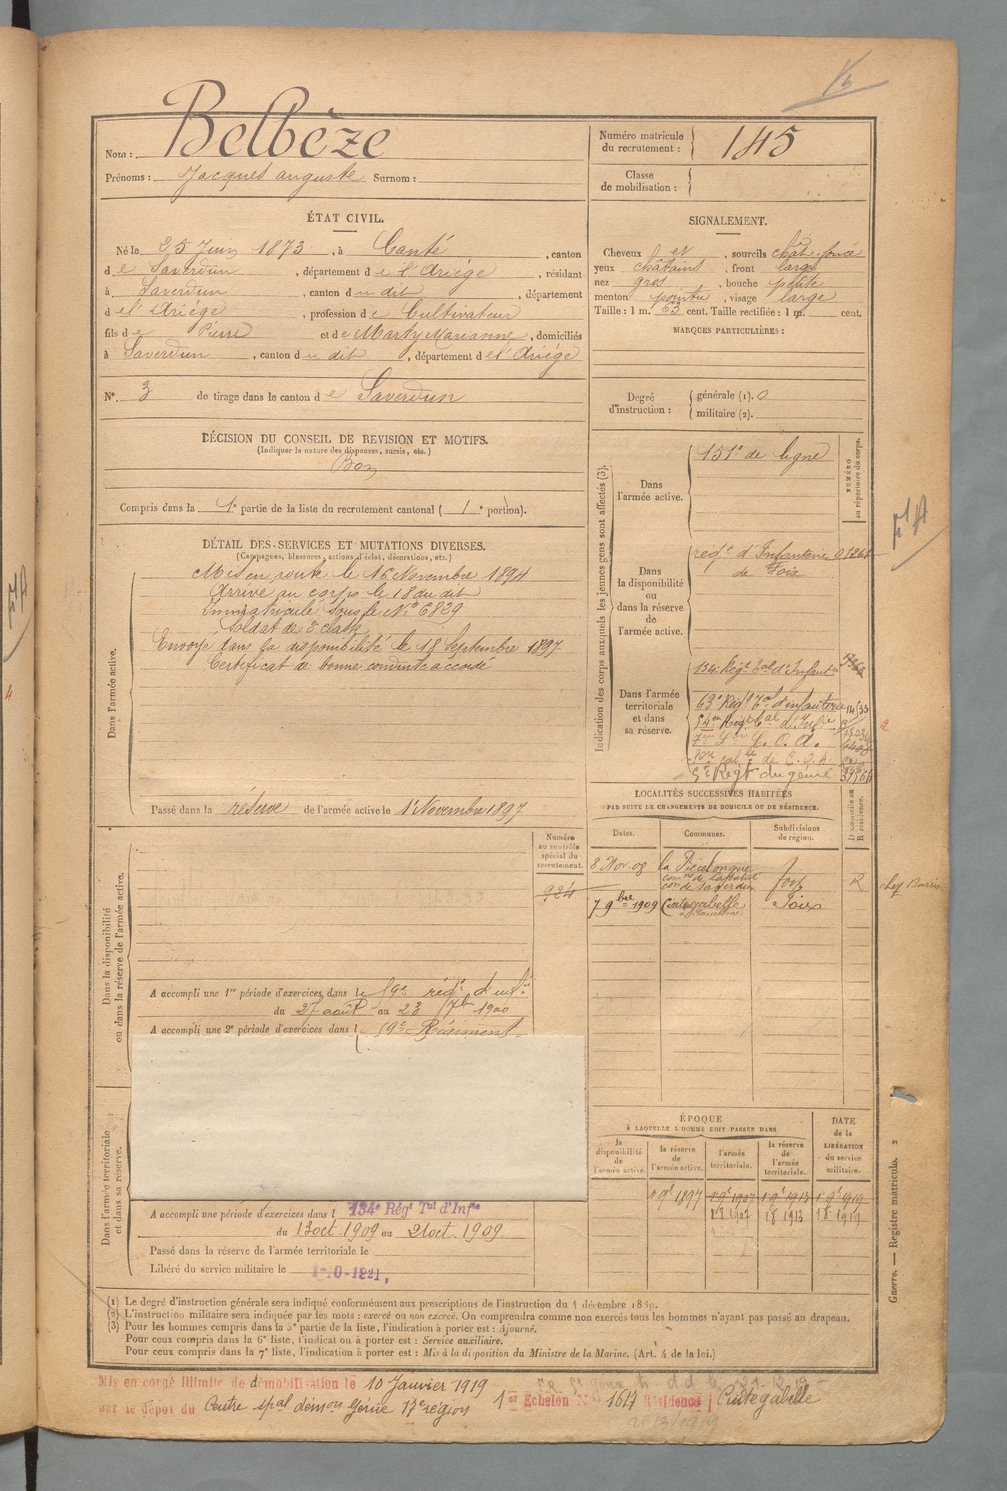 Nom : Belbèze
Prénoms : Jacques auguste Surnom :
Numéro matricule du recrutement : 145
Classe de mobilisation :
ÉTAT CIVIL.
Né le 25 Juin 1873, à Canté, canton
de Saverdun, département de l'Ariège, résidant
à Saverdun, canton du dit, département
de l'Ariège, profession de Cultivateur
fils de Pierre et de Marty Marianne, domiciliés
à Saverdun, canton du dit, département de l'Ariège
N° 3 de tirage dans le canton de Saverdun
SIGNALEMENT.
Cheveux et sourcils chât. foncé
yeux châtains, front large
nez gros, bouche petite
menton pointu, visage large
Taille : 1 m. 63 cent. Taille rectifiée : 1 m. cent.
MARQUES PARTICULIÈRES :
Degré d'instruction : générale (1). 0
militaire (2).
DÉCISION DU CONSEIL DE REVISION ET MOTIFS.
(Indiquer la nature des dispenses, sursis, etc.)
Bon
Compris dans la 1e partie de la liste du recrutement cantonal (1e portion).
DÉTAIL DES SERVICES ET MUTATIONS DIVERSES.
(Campagnes, blessures, actions d'éclat, décorations, etc.)
Dans l'armée active.
Mis en route le 16 Novembre 1894
Arrivé au corps le 18 du dit
Immatriculé sous le N° 6829
Soldat de 2e classe
Envoyé dans la disponibilité le 18 Septembre 1897
Certificat de bonne conduite accordé
Passé dans la réserve de l'armée active le 1er Novembre 1897
Indication des corps auxquels les jeunes gens sont affectés (3).
NUMÉRO au répertoire du corps.
Dans l'armée active. 151e de ligne
Dans la disponibilité ou dans la réserve de l'armée active.
régt d'Infanterie
de Foix
Dans l'armée territoriale et dans sa réserve.
134e Régt Tal d'Infante
63e Régt Tal d'infanterie
Régt tal d'Infie
5e Régt du génie
LOCALITÉS SUCCESSIVES HABITÉES
PAR SUITE DE CHANGEMENTS DE DOMICILE OU DE RÉSIDENCE.
Dates. Communes. Subdivisions de région. D domicile ou R résidence.
8 Nov. 08 Foix R
7 9bre 1909 Cintegabelle Foix
Dans la disponibilité ou dans la réserve de l'armée active.
Numéro au contrôle spécial du recrutement.
924
A accompli une 1re période d'exercices, dans le 59e régt d'infie
du 27 août au 23 7bre 1900
A accompli une 2e période d'exercices dans le 59e Régiment
Dans l'armée territoriale et dans sa réserve.
A accompli une période d'exercices dans l 134e Régt Tal d'Infie
du 13 oct. 1909 au 21 oct. 1909
Passé dans la réserve de l'armée territoriale le
Libéré du service militaire le 1-10-1921.
ÉPOQUE
À LAQUELLE L'HOMME DOIT PASSER DANS
la disponibilité de l'armée active. la réserve de l'armée active. l'armée territoriale. la réserve de l'armée territoriale.
DATE de la LIBÉRATION du service militaire.
1 9e 1897 1 9e 1907 1 9e 1913 1 9e 1919
1 8 1907 1 8 1913 1 8 1919
Guerre. — Registre matricule. 2
(1) Le degré d'instruction générale sera indiqué conformément aux prescriptions de l'instruction du 4 décembre 1889.
(2) L'instruction militaire sera indiquée par les mots : exercé ou non exercé. On comprendra comme non exercés tous les hommes n'ayant pas passé au drapeau.
(3) Pour les hommes compris dans la 5e partie de la liste, l'indication à porter est : Ajourné.
Pour ceux compris dans la 6e liste, l'indication à porter est : Service auxiliaire.
Pour ceux compris dans la 7e liste, l'indication à porter est : Mis à la disposition du Ministre de la Marine. (Art. 4 de la loi.)
Mis en congé illimité de démobilisation le 10 Janvier 1919
par le dépot du Centre spal démon Génie 17e région 1er Echelon N° 1617 Résidence Cintegabelle